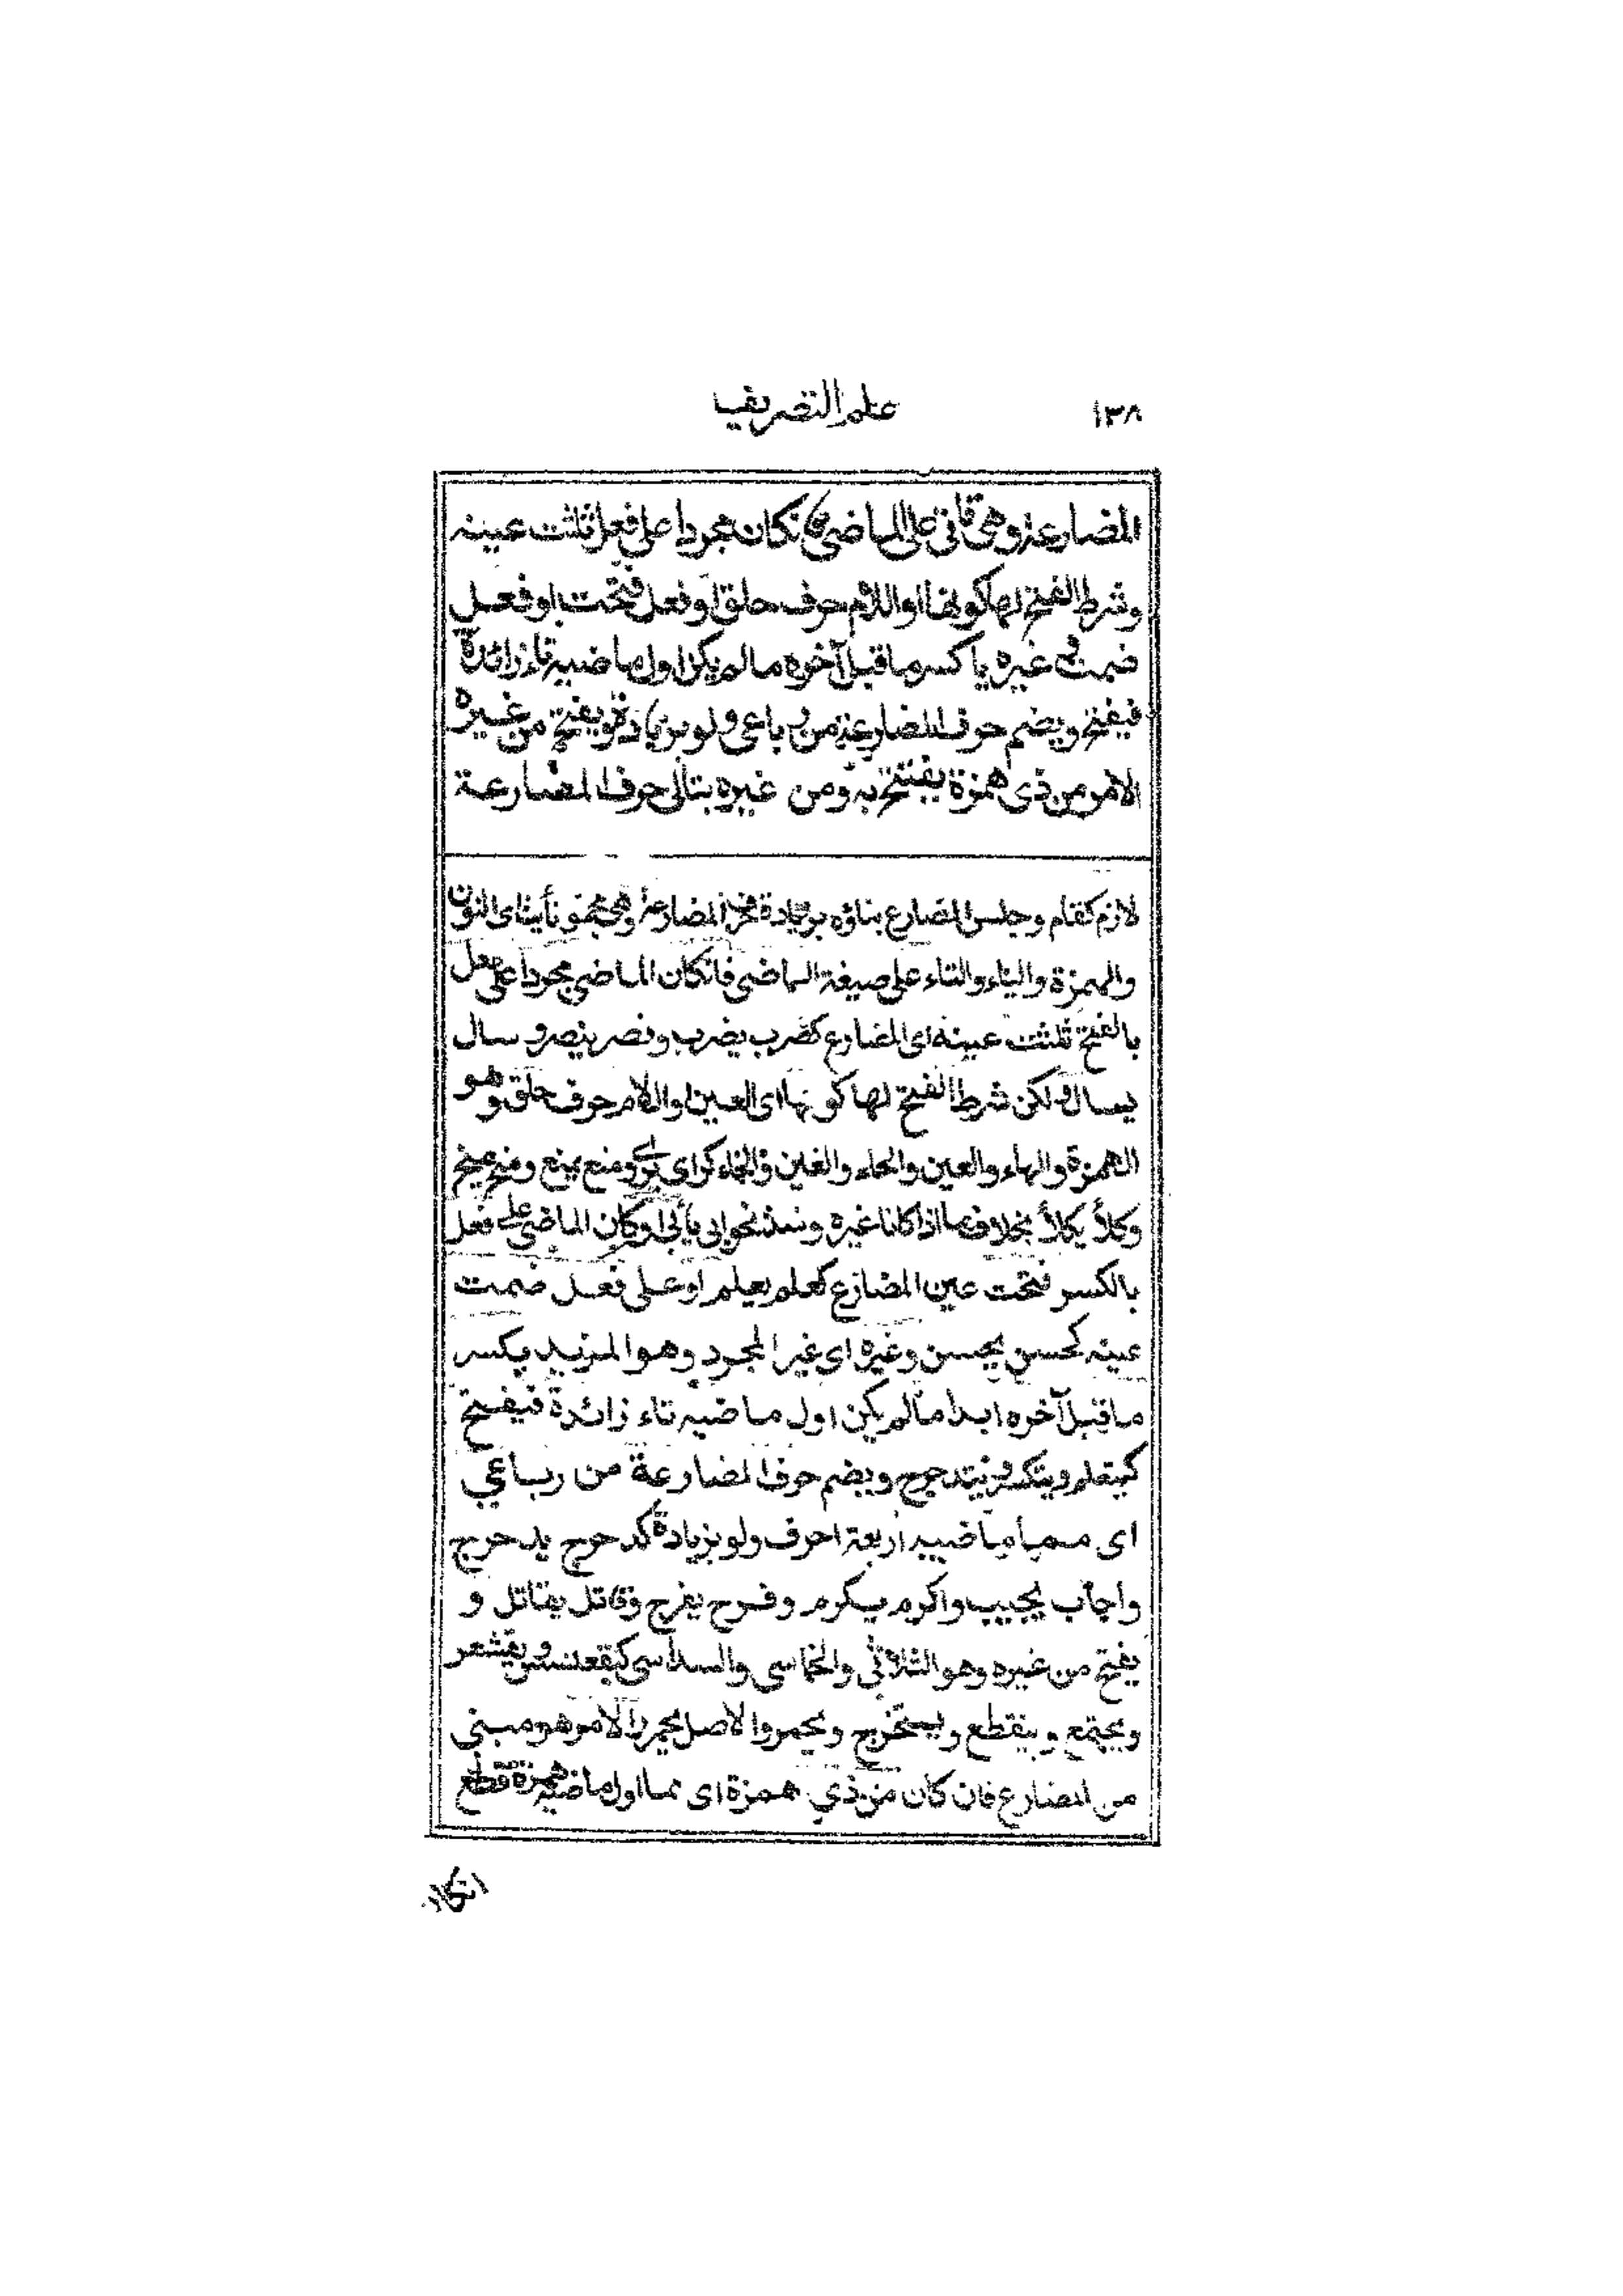 ١٣٨
علم التصريف
المضارعة وهى نأتى على الماضى فان كان مجردا على فعل ثلثت عينه
وشرط الفتح لها كونها او اللام حرف حلق او فعل فتحت او فعل
ضمت فى غيره يا كسر ما قبل آخره ما لم يكن اول ماضيه تاء زائدة
فيفتح ويضم حرف المضارعة من رباعى ولو بزيادة ويفتح من غيره
الامر من ذى همزة يفتتح به ومن غيره بتالى حرف المضارعة
لازم كقام وجلس المضارع بناؤه بزيادة حرف المضارعة وهى مجمو نأيت اى النون
والهمزة والياء والتاء على صيغة الماضى فان كان الماضى مجردا على فعل
بالفتح ثلثت عينه اى المضارع كضرب يضرب ونصر ينصر و سال
يسال ولكن شرط الفتح لها كونها اى العين او اللام حرف حلق وهو
الهمزة والهاء والعين والحاء والغين والخاء كراى يرى ومنع يمنع ومنح يمنح
وكلأ يكلأ بخلاف ما اذا كانا غيره وشذ نحو ابى يأبى او كان الماضى على فعل
بالكسر فتحت عين المضارع كعلم يعلم او على فعل ضمت
عينه كحسن يحسن وغيره اى غير المجرد وهو المزيد يكسر
ما قبل آخره ابدا ما لم يكن اول ماضيه تاء زائدة فيفتح
كيتعلم ويتكسر ويتدحرج ويضم حرف المضارعة من رباعي
اى مما ماضيه اربعة احرف ولو بزيادة كدحرج يدحرج
واجاب يجيب واكرم يكرم وفرح يفرح وقاتل يقاتل و
يفتح من غيره وهو الثلاثى والخماسى والسداسى كيقعنسس ويقشعر
ويجتمع وينقطع ويستخرج ويحمر والاصل يحمرر الامر هو مبنى
من المضارع فان كان من ذي همزة اى مما اول ماضيه همزة قطع